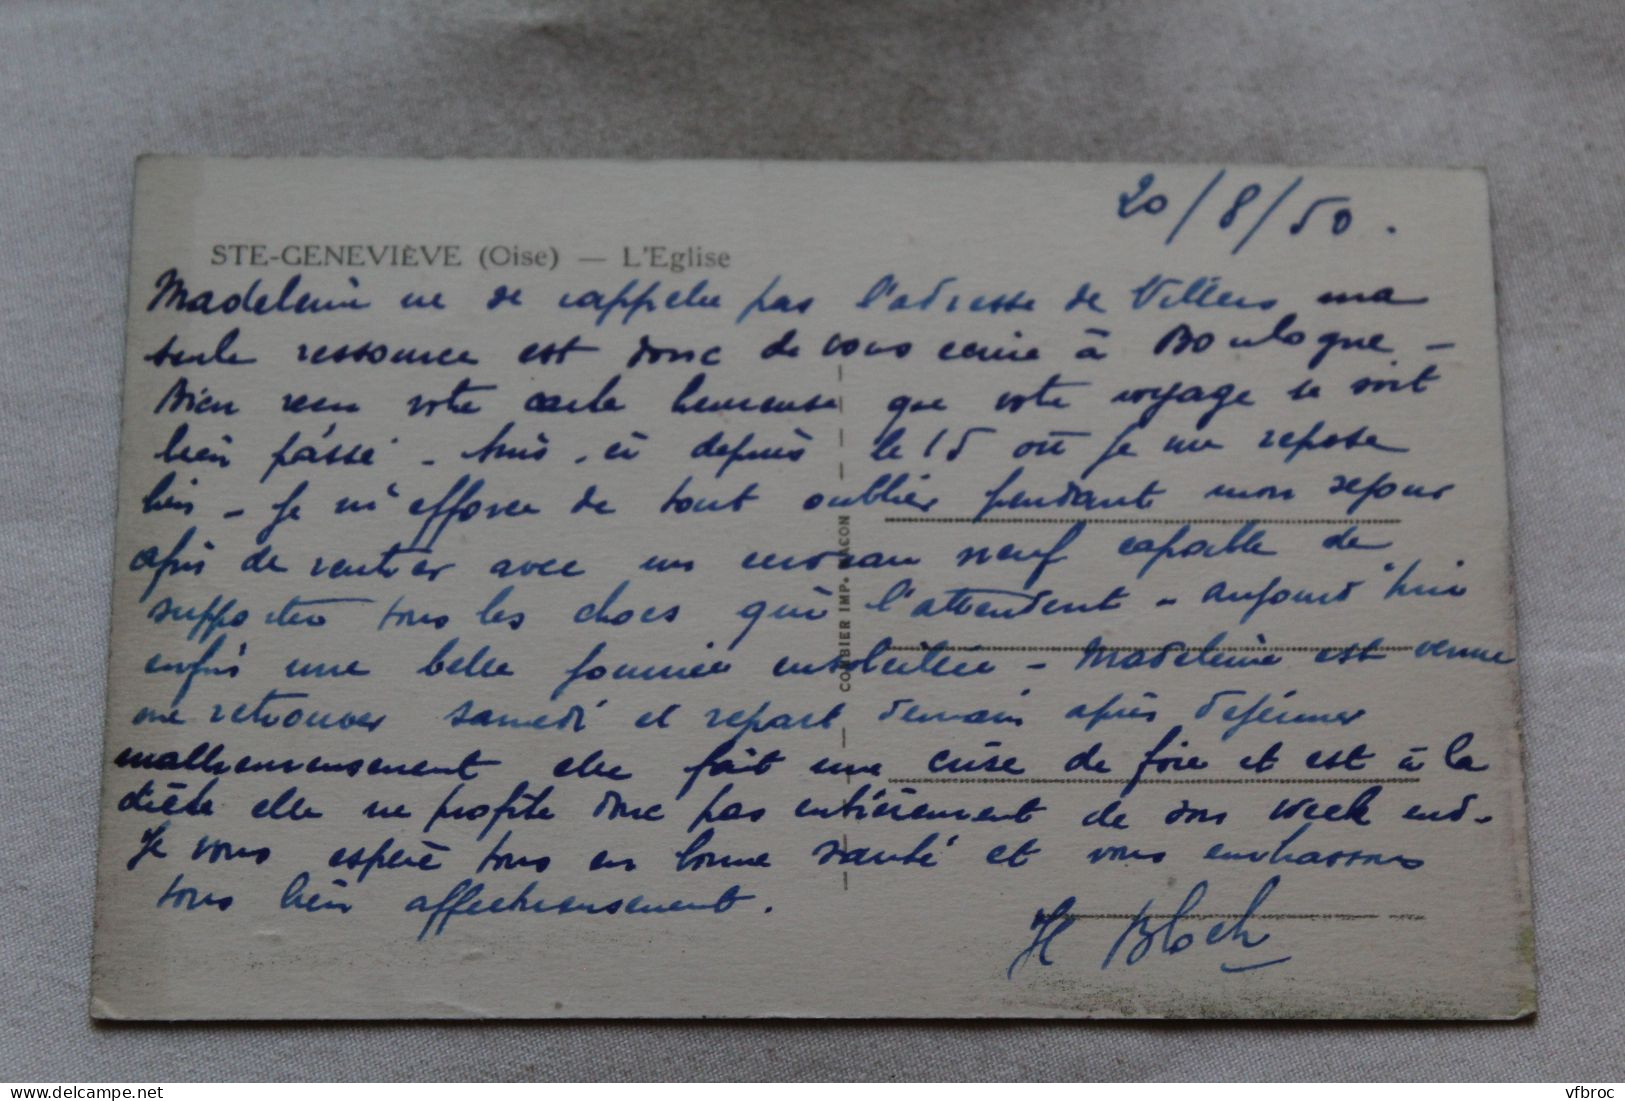 20/8/50.
STE-GENEVIÈVE (Oise) — L'Eglise
Madeleine ne se rappelle pas l'adresse de Villers ma
seule ressource est donc de vous écrire à Boulogne -
Bien reçu votre carte heureuse que votre voyage se soit
bien passé - Suis ici depuis le 15 où je me repose
bien - Je m'efforce de tout oublier pendant mon séjour
afin de rentrer avec un cerveau neuf capable de
supporter tous les chocs qui l'attendent - Aujourd'hui
enfin une belle journée ensoleillée - Madeleine est venue
me retrouver samedi et repart demain après déjeuner
malheureusement elle fait une crise de foie et est à la
diète elle ne profite donc pas entièrement de son week end -
Je vous espère tous en bonne santé et vous embrassons
tous bien affectueusement.
H Bloch
COMBIER IMP. MACON
vfbroc